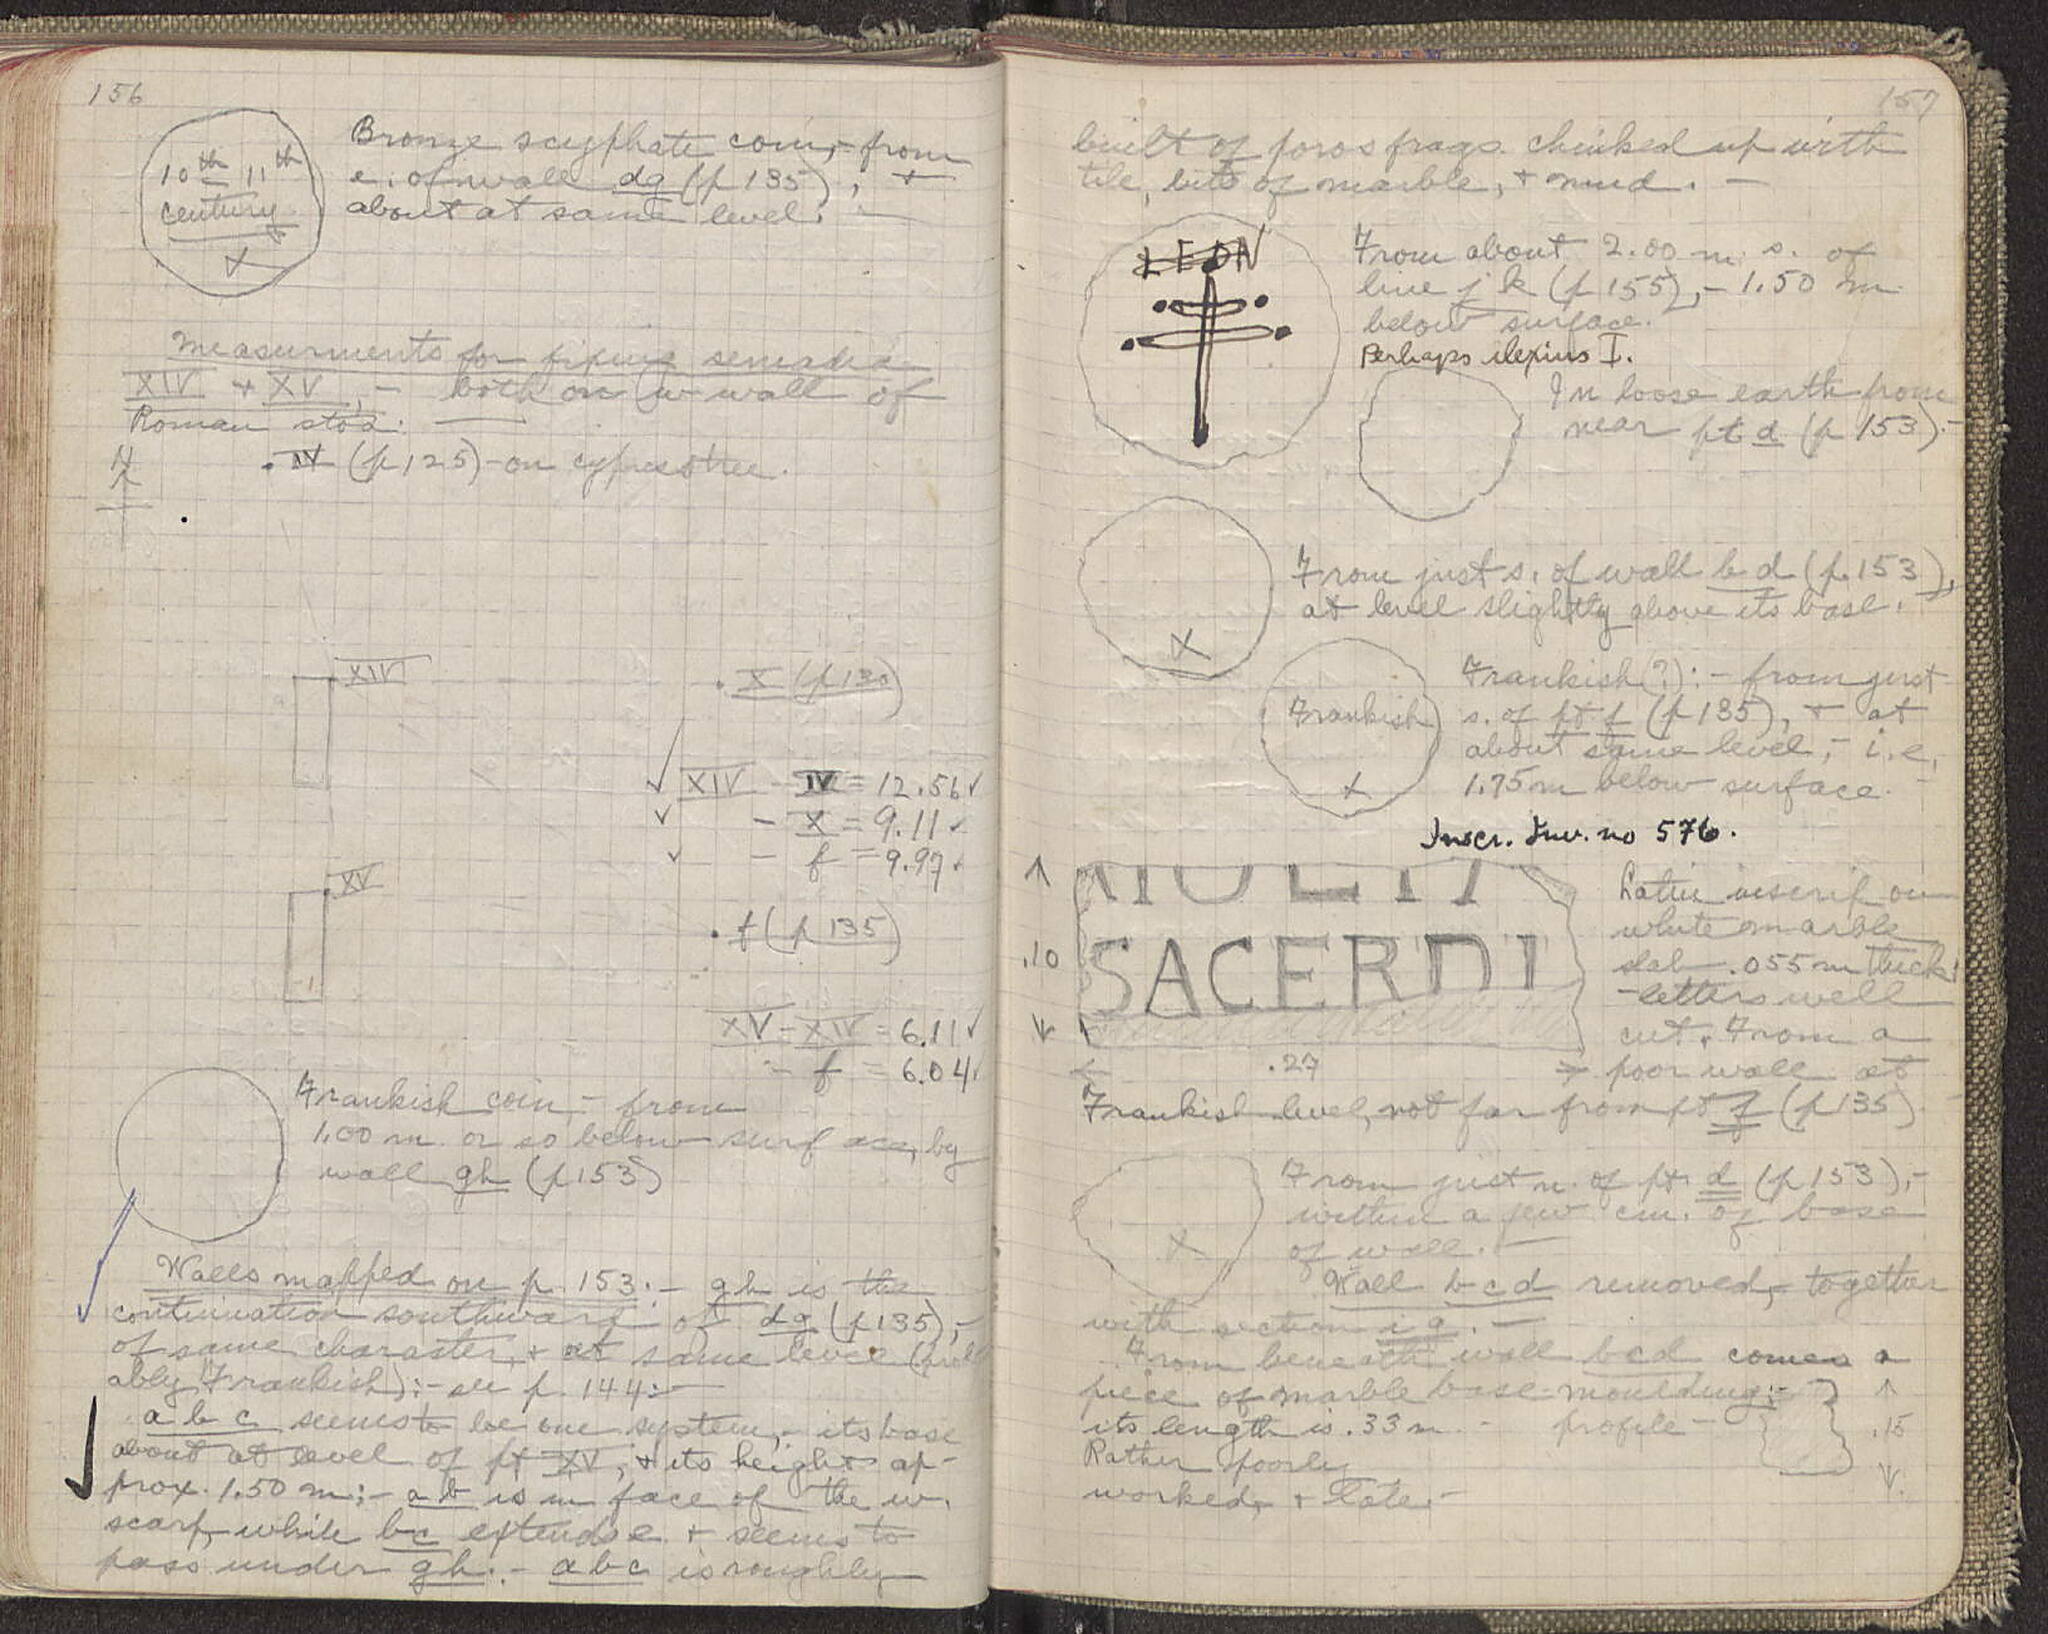 156
10th 11th
century
X
Bronze scyphate coin,- from
e. of wall dg (p 135), +
about at same level. —
Measurments for fixing semadia
XIV + XV, - both on w wall of
Roman stoa: —
N
. IV (p 125) - on cypress tree.
XIV
. X (p 130)
XIV - IV = 12.56 ✓
- X = 9.11 ✓
- f = 9.97 ✓
XV
. f (p 135)
XV - XIV = 6.11 ✓
- f = 6.04 ✓
Frankish coin,- from
1.00 m. or so below surface, by
wall gh (p 153)
Walls mapped on p. 153:- gh is the
continuation southward of dg (p 135),-
of same character, + at same level (prob
ably Frankish):- see p. 144:-
a b c seems to be one system,- its base
about at level of pt XV, + its height ap-
prox. 1.50 m;- ab is in face of the w.
scarp, while bc extends e. + seems to
pass under gh.- abc is roughly
157
built of poros frags. chinked up with
tile, bits of marble, + mud. —
LEON
From about 2.00 m. s. of
line j k (p 155),- 1.50 m.
below surface.
Perhaps Alexius I.
In loose earth from
near pt d (p 153).-
From just s. of wall b d (p. 153),
at level slightly above its base.
X
Frankish
X
Frankish (?):- from just
s. of pt f (p 135), + at
about same level,- i.e.
1.75 m below surface.
Inscr. Inv. no 576.
SACERD
.10
.27
Latin inscrip on
white marble
slab .055 m thick
- letters well
cut. From a
poor wall at
Frankish level, not far from pt f (p 135)
From just n. of pt. d (p 153),-
within a few cm. of base
of wall. —
X
Wall b c d removed,- together
with section i g. —
From beneath wall bcd comes a
piece of marble base-moulding;-
its length is .33 m. - profile -
.15
Rather poorly
worked, + late.-